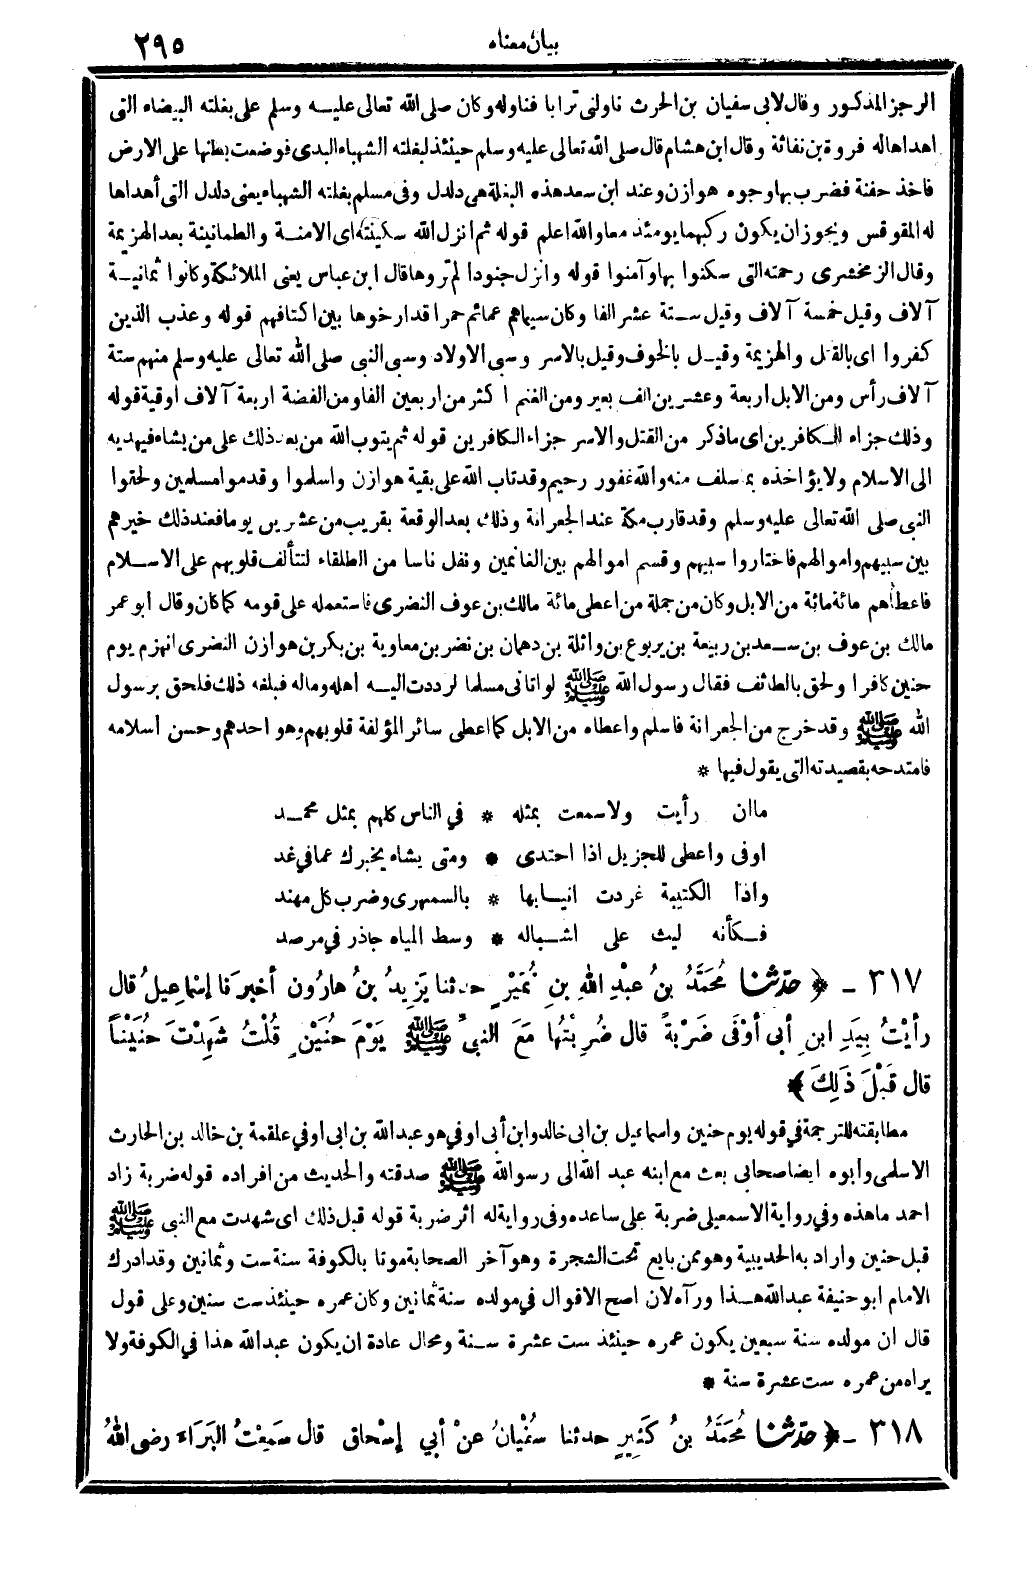 بيان معناه
٢٩٥
الرجز المذكور وقال لابى سفيان بن الحرث ناولنى ترابا فناوله وكان صلى الله تعالى عليه وسلم على بغلته البيضاء التى
اهداها له فروة بن نفاثة وقال ابن هشام قال صلى الله تعالى عليه وسلم حينئذ لبغلته الشهباء البدى فوضعت بطنها على الارض
فاخذ حفنة فضرب بها وجوه هوازن وعند ابن سعد هذه البغلة هى دلدل وفى مسلم بغلته الشهباء يعنى دلدل التى أهداها
له المقوقس ويجوز ان يكون ركبهما يومئذ معا والله اعلم قوله ثم انزل الله سكينته اى الامنة والطمانينة بعد الهزيمة
وقال الزمخشرى رحمته التى سكنوا بها وآمنوا قوله وانزل جنودا لم تروها قال ابن عباس يعنى الملائكة وكانوا ثمانية
آلاف وقيل خمسة آلاف وقيل ستة عشر الفا وكان سيماهم عمائم حمرا قد ارخوها بين اكتافهم قوله وعذب الذين
كفروا اى بالقتل والهزيمة وقيل بالخوف وقيل بالاسر وسبى الاولاد وسبى النبى صلى الله تعالى عليه وسلم منهم ستة
آلاف رأس ومن الابل اربعة وعشرين الف بعير ومن الغنم اكثر من اربعين الفا ومن الفضة اربعة آلاف اوقية قوله
وذلك جزاء الكافرين اى ما ذكر من القتل والاسر جزاء الكافرين قوله ثم يتوب الله من بعد ذلك على من يشاء فيهديه
الى الاسلام ولا يؤاخذه بما سلف منه والله غفور رحيم وقد تاب الله على بقية هوازن واسلموا وقدموا مسلمين ولحقوا
النبى صلى الله تعالى عليه وسلم وقد قارب مكة عند الجعرانة وذلك بعد الوقعة بقريب من عشرين يوما فعند ذلك خيرهم
بين سبيهم واموالهم فاختاروا سبيهم وقسم اموالهم بين الغانمين ونفل ناسا من الطلقاء لتتألف قلوبهم على الاسلام
فاعطاهم مائة مائة من الابل وكان من جملة من اعطى مائة مالك بن عوف النضرى فاستعمله على قومه كما كان وقال ابو عمر
مالك بن عوف بن سعد بن ربيعة بن يربوع بن واثلة بن دهمان بن نضر بن معاوية بن بكر بن هوازن النضرى انهزم يوم
حنين كافرا ولحق بالطائف فقال رسول الله ﷺ لو اتانى مسلما لرددت اليه اهله وماله فبلغه ذلك فلحق برسول
الله ﷺ وقد خرج من الجعرانة فاسلم واعطاه من الابل كما اعطى سائر المؤلفة قلوبهم وهو احدهم وحسن أسلامه
فامتدحه بقصيدته التى يقول فيها *
ماان رأيت ولا سمعت بمثله * في الناس كلهم بمثل محمد
اوفى واعطى للجزيل اذا احتدى * ومتى يشاء يخبرك عما في غد
واذا الكتيبة غردت انيابها * بالسمهرى وضرب كل مهند
فكأنه ليث على اشباله * وسط المياه جاذر في مرصد
٣١٧ - ﴿ حدثنا مُحَمَّدُ بنُ عبْدِ اللهِ بنِ نُمَيْرٍ حدثنا يَزِيدُ بنُ هارُون أخبرَنا إسْماعِيلُ قال
رأيْتُ بِيَدِ ابنِ أبى أوْفَى ضَرْبةً قال ضُرِبْتُها مَعَ النبىِّ ﷺ يَوْمَ حُنَيْنٍ قُلْتُ شَهِدْتَ حُنَيْناً
قال قَبْلَ ذَلِكَ ﴾
مطابقته للترجمة في قوله يوم حنين واسماعيل بن ابى خالد وابن أبى أوفي هو عبد الله بن ابى اوفي علقمة بن خالد بن الحارث
الاسلمى وأبوه ايضا صحابي بعث مع ابنه عبد الله الى رسو الله ﷺ صدقته والحديث من افراده قوله ضربة زاد
احمد ما هذه وفي رواية الاسمعيلى ضربة على ساعده وفى رواية له اثر ضربة قوله قبل ذلك اى شهدت مع النبى ﷺ
قبل حنين واراد به الحديبية وهو ممن بايع تحت الشجرة وهو آخر الصحابة موتا بالكوفة سنة ست وثمانين وقد ادرك
الامام ابو حنيفة عبد الله هذا ورآه لان اصح الاقوال في مولده سنة ثمانين وكان عمره حينئذ ست سنين وعلى قول
قال ان مولده سنة سبعين يكون عمره حينئذ ست عشرة سنة ومحال عادة ان يكون عبد الله هذا في الكوفة ولا
يراه من عمره ست عشرة سنة *
٣١٨ - ﴿ حدثنا مُحَمَّدُ بنُ كَثِيرٍ حدثنا سُفْيانُ عنْ أبي إسْحاق قال سَمِعْتُ البَرَاءَ رضى اللهُ